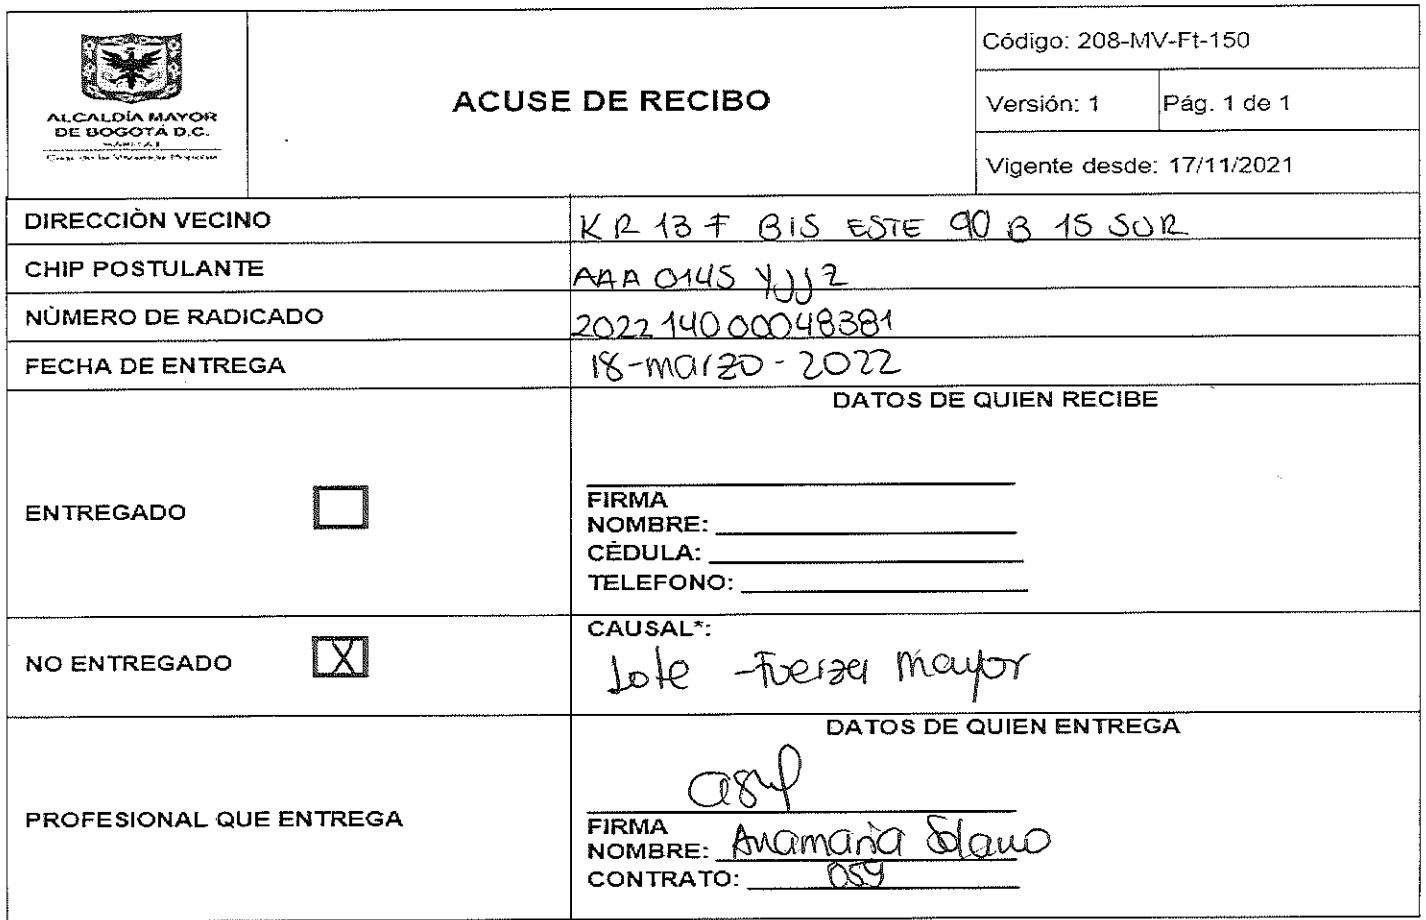 ALCALDÍA MAYOR
DE BOGOTÁ D.C.
HÁBITAT
Caja de la Vivienda Popular
ACUSE DE RECIBO
Código: 208-MV-Ft-150
Versión: 1
Pág. 1 de 1
Vigente desde: 17/11/2021
DIRECCIÒN VECINO
KR 13 F BIS ESTE 90 B 15 SUR
CHIP POSTULANTE
AAA 0145 YJJZ
NÙMERO DE RADICADO
202214000048381
FECHA DE ENTREGA
18-marzo-2022
DATOS DE QUIEN RECIBE
ENTREGADO
FIRMA
NOMBRE:
CÈDULA:
TELEFONO:
NO ENTREGADO X
CAUSAL*:
Lote - Fuerza Mayor
DATOS DE QUIEN ENTREGA
PROFESIONAL QUE ENTREGA
FIRMA
NOMBRE: Anamaria Solano
CONTRATO: 059